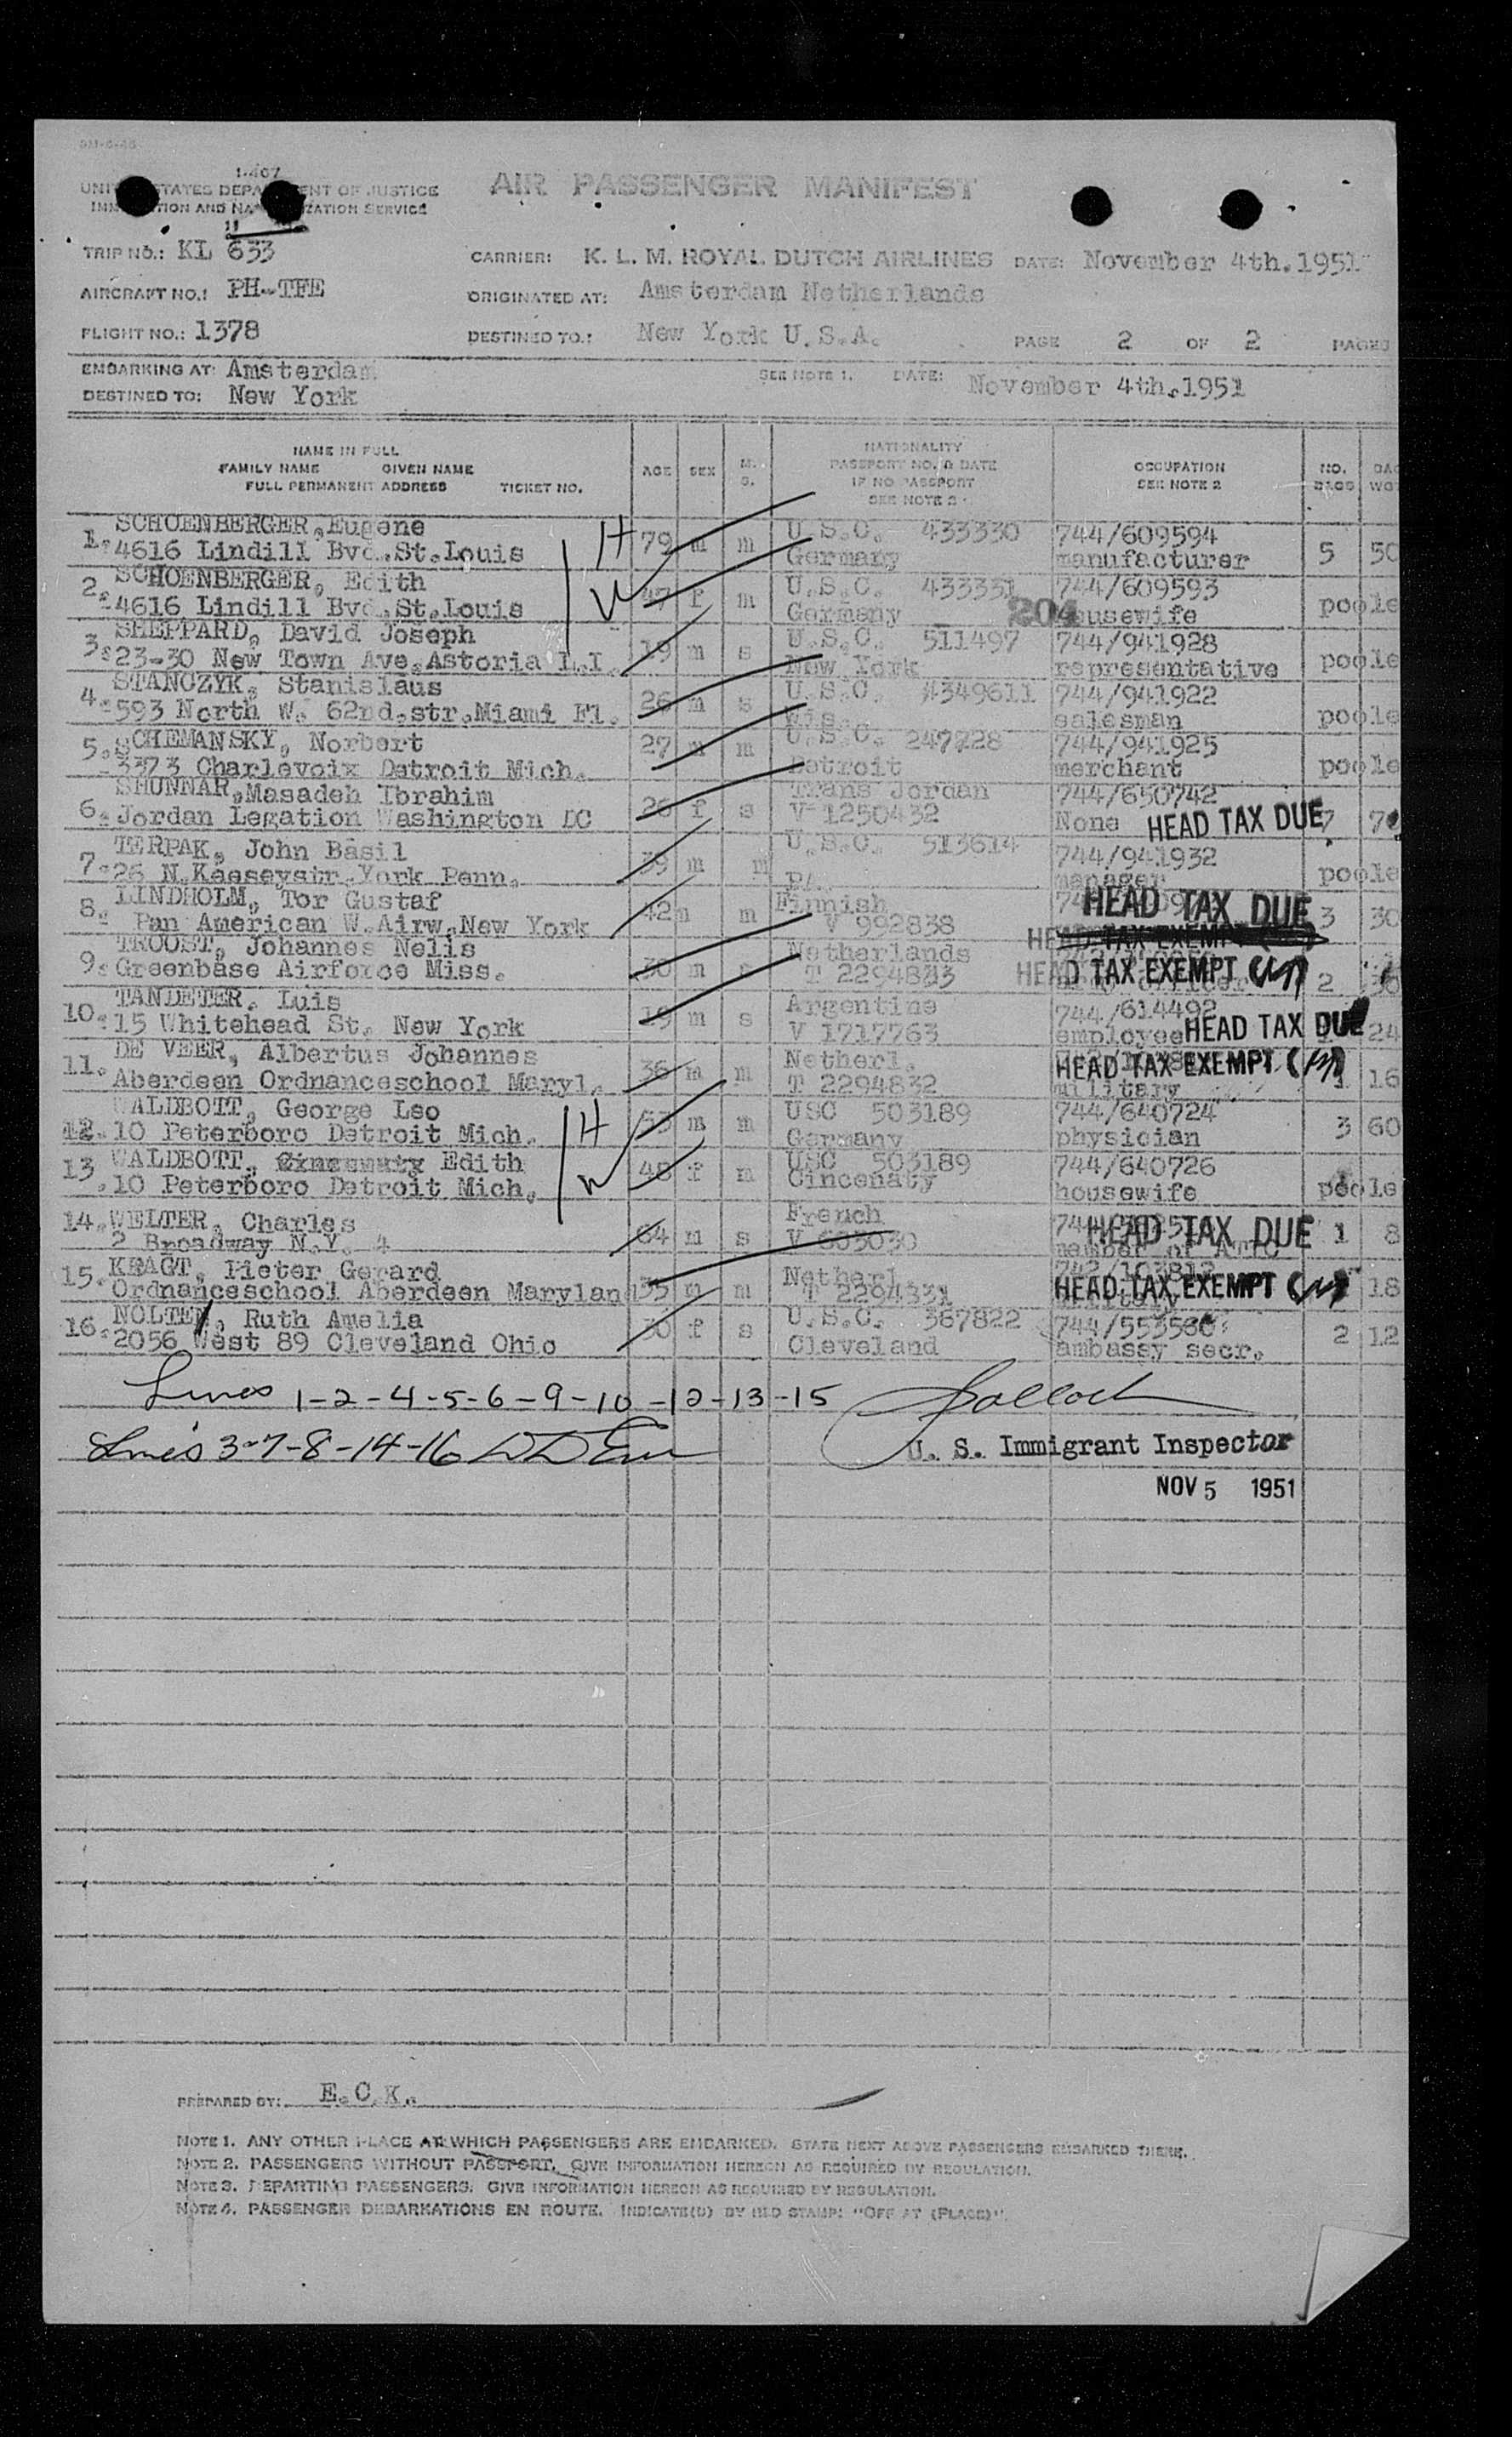 1-407
UNITED STATES DEPARTMENT OF JUSTICE
IMMIGRATION AND NATURALIZATION SERVICE
AIR PASSENGER MANIFEST
11
TRIP NO.: KL 633
CARRIER: K. L. M. ROYAL DUTCH AIRLINES DATE: November 4th.1951
AIRCRAFT NO.: PH-TFE
ORIGINATED AT: Amsterdam Netherlands
FLIGHT NO.: 1378
DESTINED TO.: New York U.S.A. PAGE 2 OF 2 PAGES
EMBARKING AT: Amsterdam
SEE NOTE 1. DATE: November 4th.1951
DESTINED TO: New York
NAME IN FULL
FAMILY NAME GIVEN NAME
FULL PERMANENT ADDRESS TICKET NO.
AGE SEX M. S.
NATIONALITY
PASSPORT NO. & DATE
IF NO PASSPORT
SEE NOTE 2
OCCUPATION
SEE NOTE 2
NO. BAGS
1. SCHOENBERGER,Eugene H 79 m m U.S.C. 433330 744/609594
4616 Lindill Bvd.St.Louis Germany manufacturer 5 50
2. SCHOENBERGER, Edith W 47 f m U.S.C. 433331 744/609593
4616 Lindill Bvd.St.Louis Germany 204 housewife poole
3. SHEPPARD, David Joseph 19 m s U.S.C. 511497 744/941928
23-30 New Town Ave.Astoria L.I. New York representative poole
4. STANCZYK, Stanislaus 26 m s U.S.C. 4349611 744/941922
593 North W. 62nd.str.Miami Fl. Wis. salesman poole
5. SCHEMANSKY, Norbert 27 m m U.S.C. 247728 744/941925
3373 Charlevoix Detroit Mich. Detroit merchant poole
6. SHUNNAR,Masadeh Ibrahim 26 f s Trans Jordan 744/650742
Jordan Legation Washington DC V-1250432 None HEAD TAX DUE 7
7. TERPAK, John Basil 39 m m U.S.C. 513614 744/941932
26 N.Kaeseystr.York Penn. PA. manager poole
8. LINDHOLM, Tor Gustaf 42 m m Finnish HEAD TAX DUE 3 30
Pan American W.Airw.New York V 992838 HEAD TAX EXEMPT
9. TROOST, Johannes Nelis 30 m Netherlands
Greenbase Airforce Miss. T 2294833 HEAD TAX EXEMPT 2
10. TANDETER, Luis 19 m s Argentine 744/614492
15 Whitehead St. New York V 1717763 employee HEAD TAX DUE 24
11. DE VEER, Albertus Johannes 36 m m Netherl. HEAD TAX EXEMPT
Aberdeen Ordnanceschool Maryl. T 2294832 military 1 16
12. WALDBOTT, George Leo H 53 m m USC 503189 744/640724
10 Peterboro Detroit Mich. Germany physician 3 60
13. WALDBOTT, Edith W 48 f m USC 503189 744/640726
10 Peterboro Detroit Mich. Cincenaty housewife poole
14. WELTER, Charles 64 m s French HEAD TAX DUE 1 8
2 Broadway N.Y. 4 V 603030
15. KRAGT, Pieter Gerard 35 m m Netherl. 742/103812
Ordnanceschool Aberdeen Marylan T 2294331 HEAD TAX EXEMPT 18
16. NOLTE, Ruth Amelia 30 f s U.S.C. 367822
2056 West 89 Cleveland Ohio Cleveland ambassy secr. 2 12
Lines 1-2-4-5-6-9-10-12-13-15
Lines 3-7-8-14-16
U. S. Immigrant Inspector
NOV 5 1951
PREPARED BY: E.C.K.
NOTE 1. ANY OTHER PLACE AT WHICH PASSENGERS ARE EMBARKED. STATE NEXT ABOVE PASSENGERS EMBARKED THERE.
NOTE 2. PASSENGERS WITHOUT PASSPORT. GIVE INFORMATION HEREON AS REQUIRED BY REGULATION.
NOTE 3. DEPARTING PASSENGERS. GIVE INFORMATION HEREON AS REQUIRED BY REGULATION.
NOTE 4. PASSENGER DEBARKATIONS EN ROUTE. INDICATE(D) BY RED STAMP: "OFF AT (PLACE)".